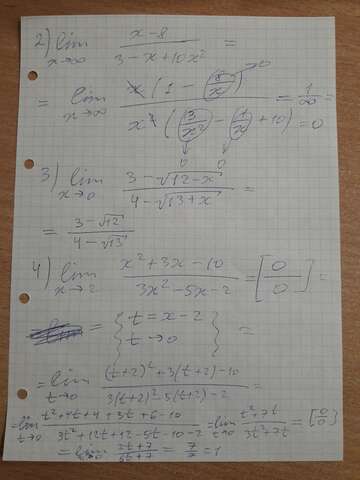 2) lim x→∞ (x-8)/(3-x+10x²) =
= lim x→∞ x(1 - (8/x)→0)/(x²((3/x²) - (1/x) + 10)) = 1/∞ = = 0
0 0
3) lim x→0 (3-√(12-x))/(4-√(13+x)) =
= (3-√12)/(4-√13)
4) lim x→2 (x²+3x-10)/(3x²-5x-2) = [0/0] =
= {t=x-2
t→0} =
= lim t→0 ((t+2)²+3(t+2)-10)/(3(t+2)²-5(t+2)-2) =
= lim t→0 (t²+4t+4+3t+6-10)/(3t²+12t+12-5t-10-2) = lim t→0 (t²+7t)/(3t²+7t) = [0/0]
= lim (2t+7)/(6t+7) = 7/7 = 1